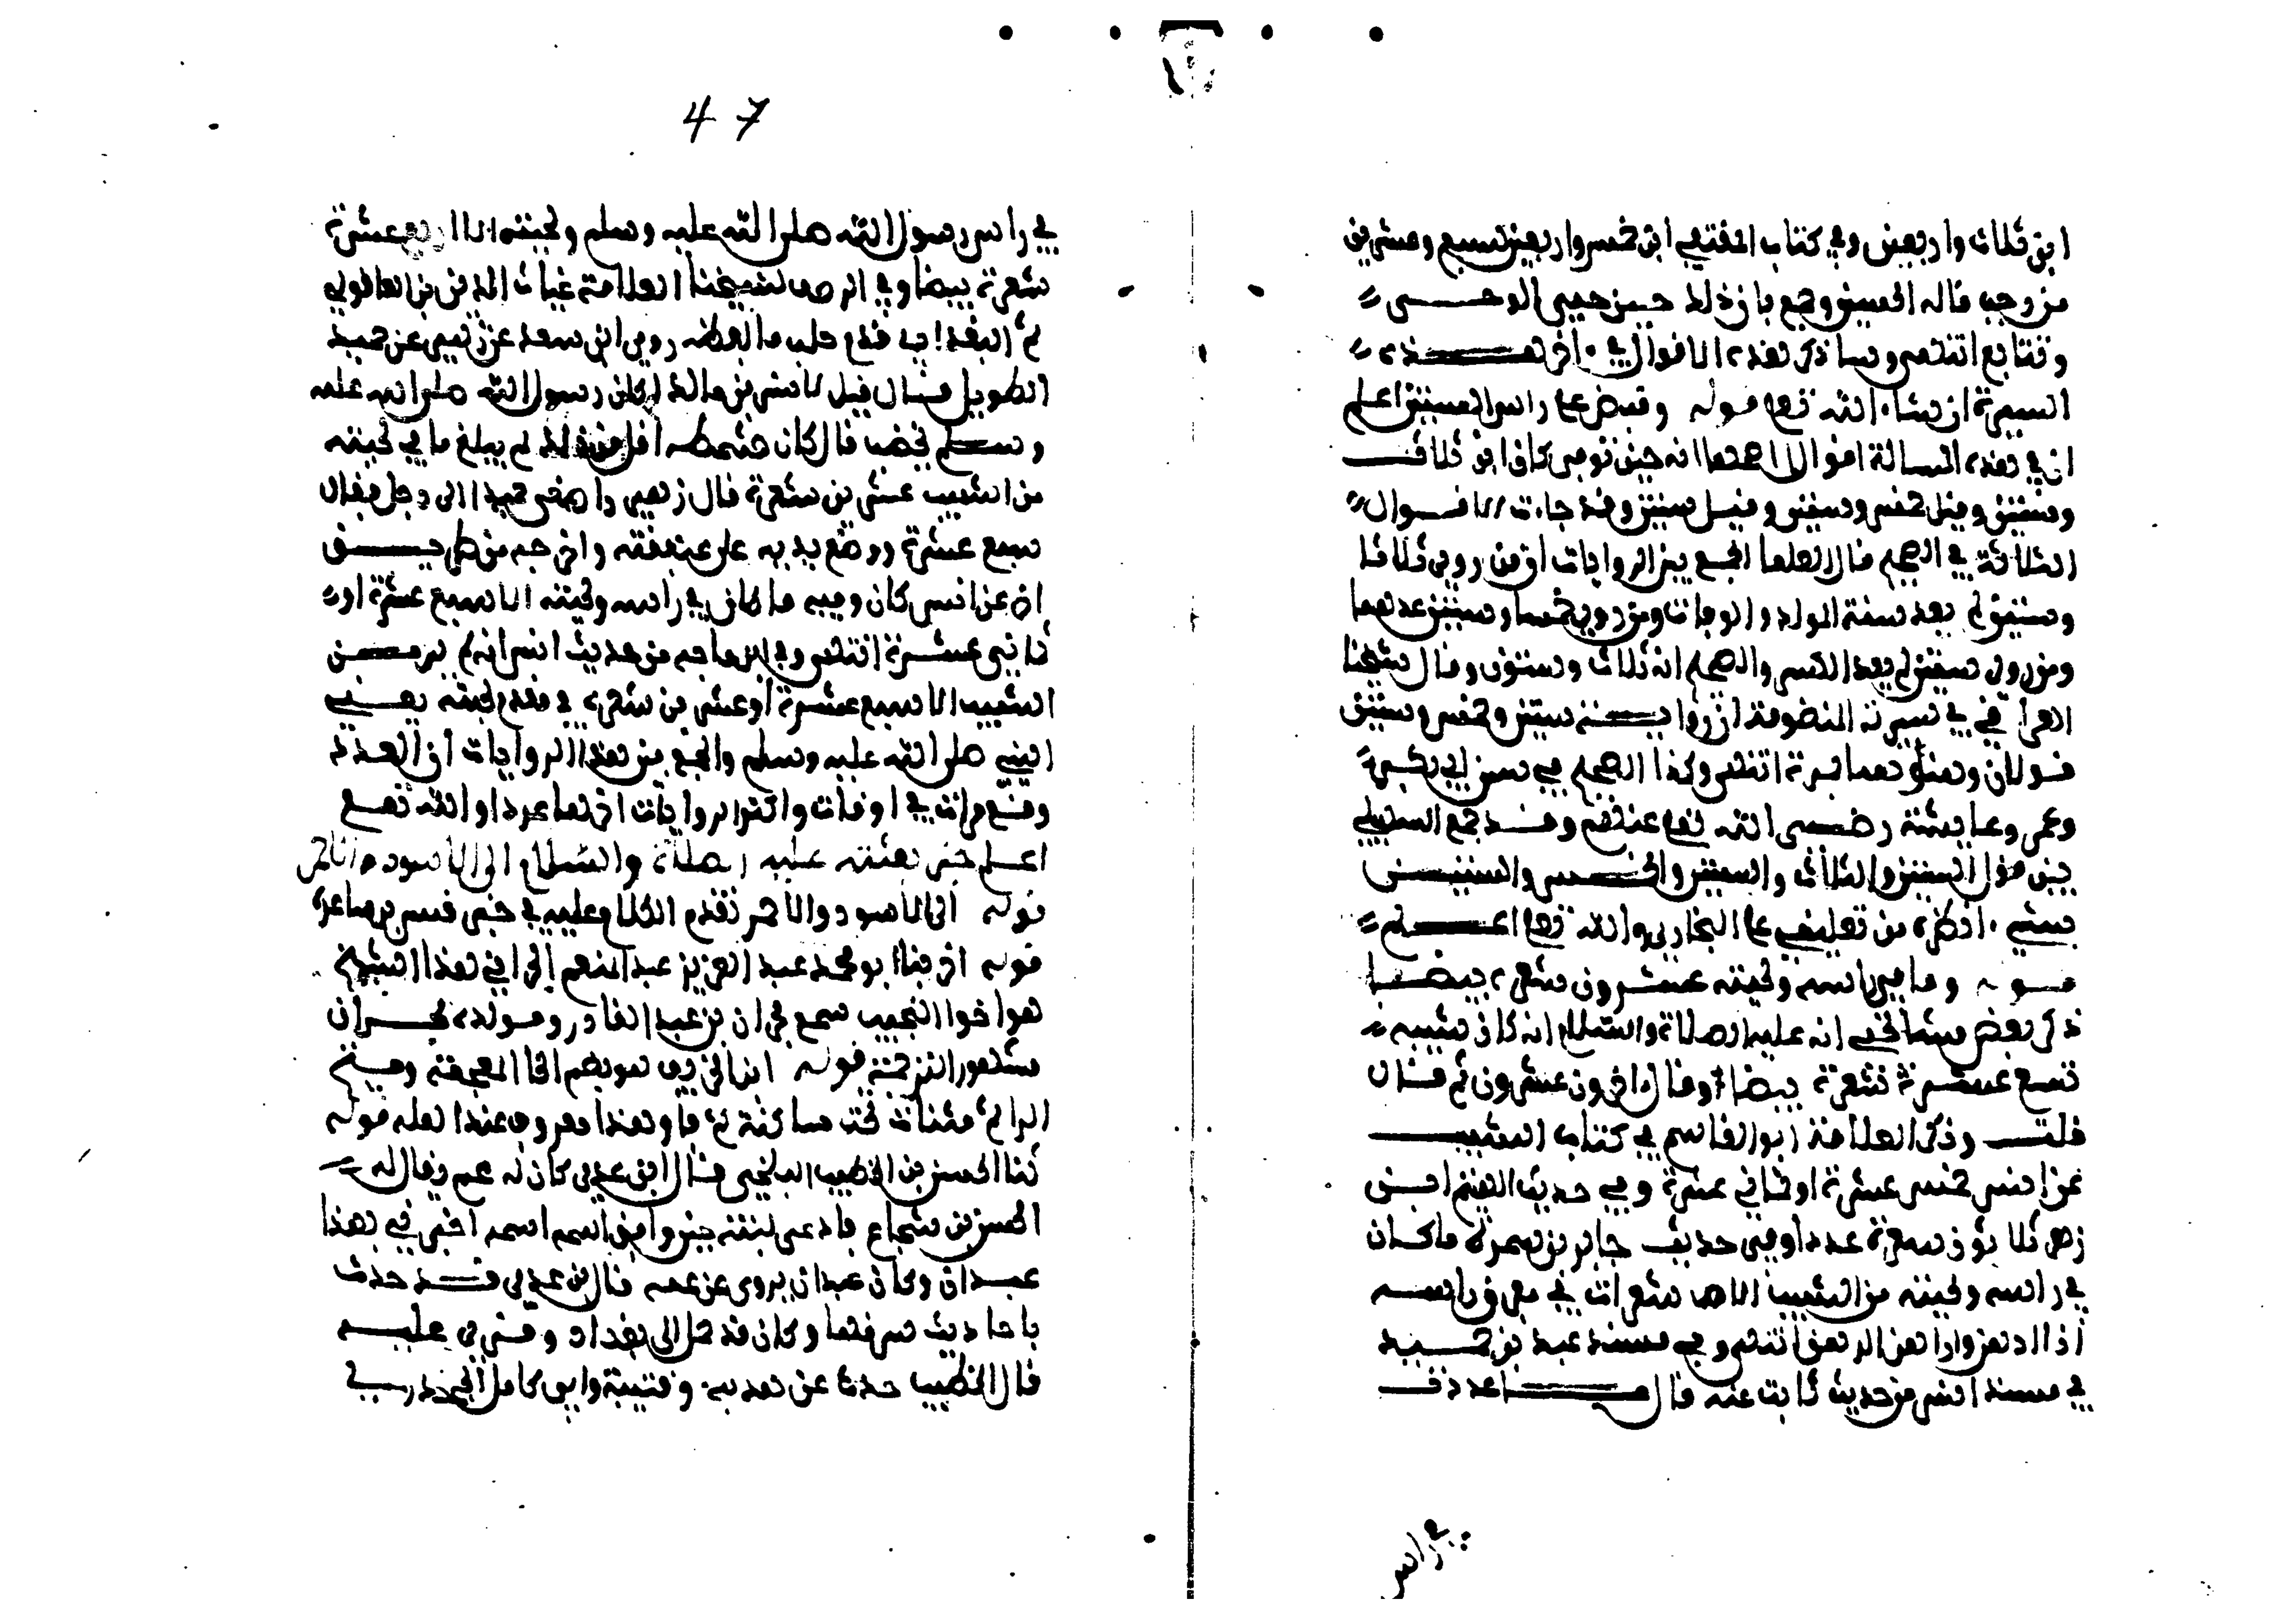 ابن ثلاث واربعين وفي كتاب العتقي ابن خمس واربعين سبع وعشرين
من رجب قاله الحسين وجمع بان ذلك حين حمي الوحي
وتتابع انتهى وساذكر هذه الاقوال في اخر هذه
السيرة ان شاء الله تعالى قوله وقبض على راس الستين اعلم
ان في هذه المسالة اقوالا اصحها انه حين توفي كان ابن ثلاث
وستين وقيل خمس وستين وقيل ستين وقد جاءت الاقوال
الثلاثة في الصحيح قال العلما الجمع بين الروايات ان من روى ثلاثا
وستين لم يعد سنة المولد والوفات ومن روى خمسا وستين عدهما
ومن روى ستين لم يعد الكسر والصحيح انه ثلاث وستون وقال شيخنا
العراقي في سيرته المنظومة ان رواية ستين وخمس وستين
قولان وهنوهما بمرة انتهى وكذا الصحيح في سن ابي بكر
وعمر وعايشة رضي الله تعالى عنهم وقد جمع السهيلي
بين قول الستين والثلاث والستين والخمس والستين
بشيء انظره من تعليقي على البخاري والله تعالى اعلم
قوله وما في راسه ولحيته عشرون شعرة بيضا
ذكر بعض مشايخي انه عليه الصلاة والسلام انه كان شيبه
تسع عشرة شعرة بيضا وقال اخرون عشرون ثم قال
قلت وذكر العلامة ابو القاسم في كتاب الشيب
عن انس خمس عشرة او ثماني عشرة وفي حديث الهيثم ابن
زهر ثلاثون شعرة عددا وفي حديث جابر بن سمرة ما كان
في راسه ولحيته من الشيب الا شعرات في مفرق راسه
اذا ادهن واراهن الدهن انتهى وفي مسند عبد بن حميد
في مسند انس من حديث ثابت عنه قال ما عددت
في راس
47
في راس رسول الله صلى الله عليه وسلم ولحيته الا اربع عشرة
شعرة بيضا وفي لشيخنا العلامة غياث الدين بن العاقولي
ثم البغدادي قدم علينا ما لفظه روى ابن سعد عن زهير عن حميد
الطويل قال قيل لانس بن مالك اكان رسول الله صلى الله عليه
وسلم يخضب قال كان شمطه اقل من ذلك لم يبلغ ما في لحيته
من الشيب عشرين شعرة قال زهير واصغى حميد الى رجل فقال
سبع عشرة ووضع يديه على عنفقته واخرجه من طريق
اخر عن انس كان وفيه ما كان في راسه ولحيته الا سبع عشرة او
ثماني عشرة انتهى وفي ابن ماجه من حديث انس انه لم ير من
الشيب الا سبع عشرة او عشرين شعرة في مقدم لحيته يعني
النبي صلى الله عليه وسلم والجمع بين هذه الروايات ان العدد
وقع مرات في اوقات واكثر الروايات اخرها عددا والله تعالى
اعلم حين بعثته عليه الصلاة والسلام الى الاسود والاحمر
قوله الى الاسود والاحمر تقدم الكلام عليه في خبر قس بن ساعدة
قوله اخبرنا ابو محمد عبد العزيز عبد المنعم الحراني هذا الشيخ
هو اخوا النجيب سمع في ان بن عبد القادر ومولده بحران
مشهور الترجمة قوله انبا الخريف هو بضم الخا المعجمة وفتح
الرا ثم مثناة تحت ساكنة ثم فا وهذا معروف عند اهله قوله
ثنا الحسن بن الطيب البلخي قال ابن عدي كان له عم يقال له
الحسن بن شجاع فادعى كتبه حين وافق اسمه اسمه اخبرني بهذا
عبدان وكان عبدان يروي عن عمه قال ابن عدي قد حدث
باحاديث سرقها وكان قد حمل الى بغداد وقرئ عليه
قال الخطيب حدث عن هدبه وقتيبة وابي كامل الجحدري